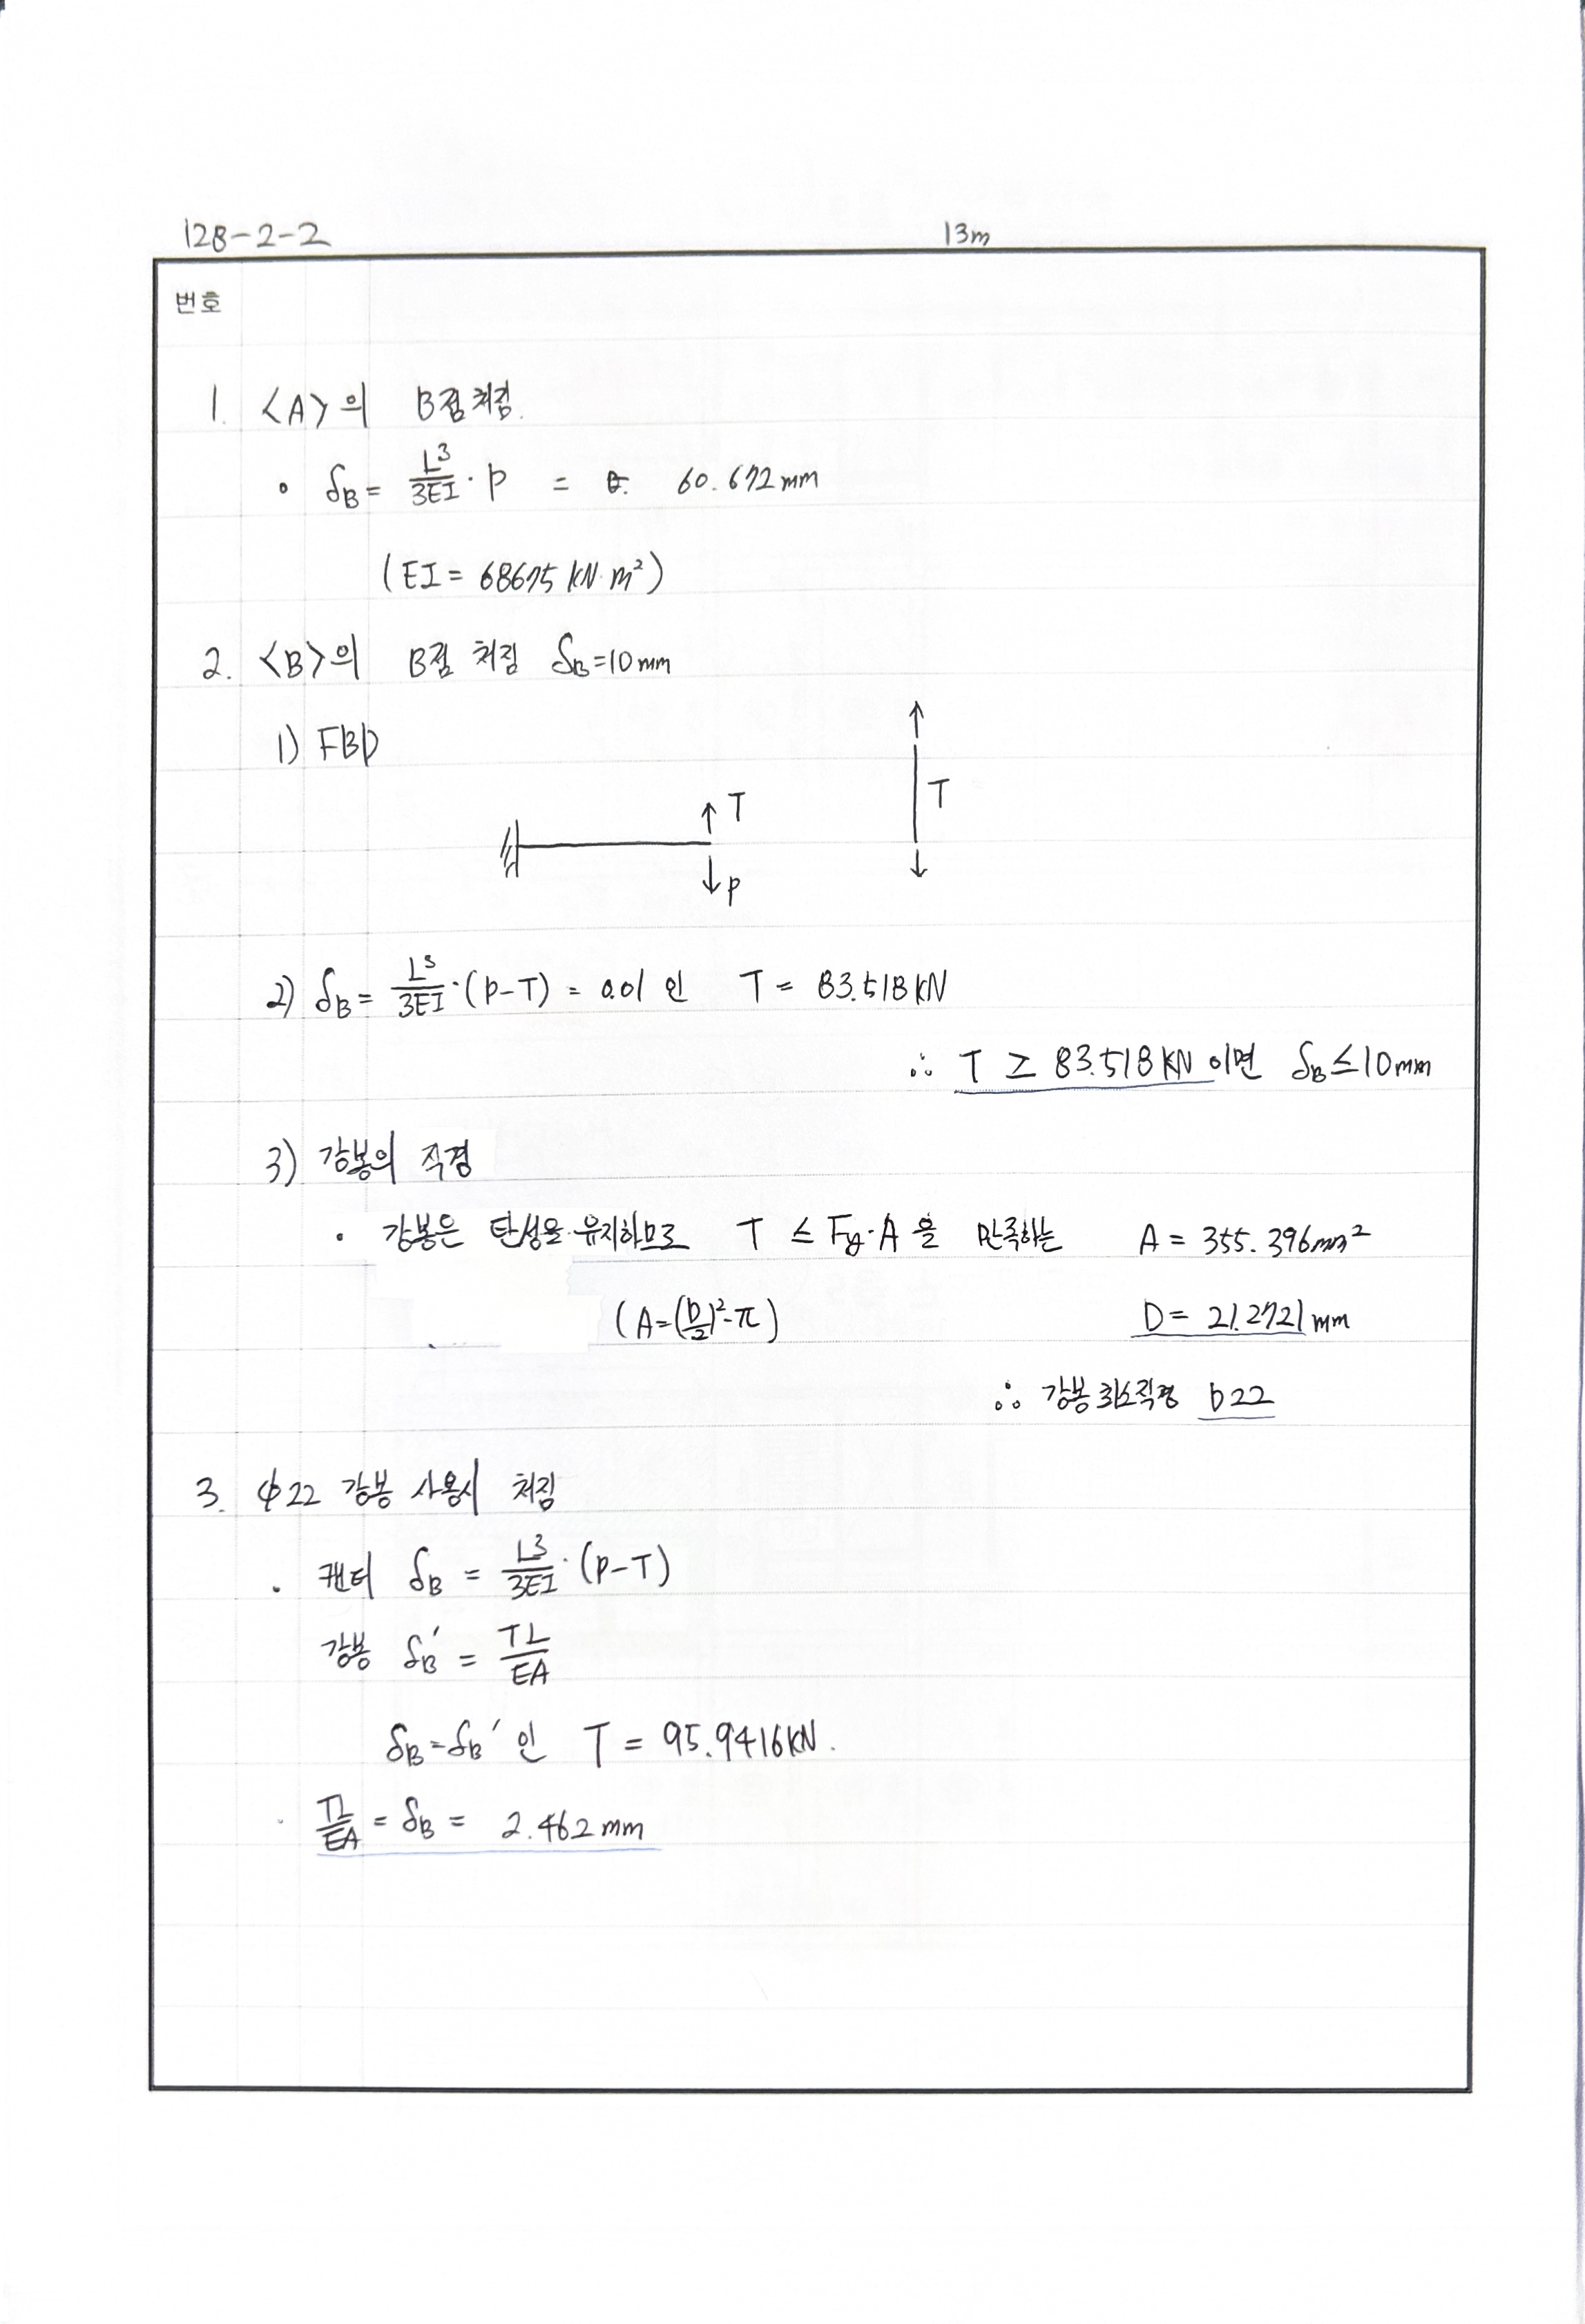 128-2-2
13m
번호
1. <A>의 B점 처짐.
• δB = L³/3EI · P = 60.672mm
(EI = 68675 kN·m²)
2. <B>의 B점 처짐 δB=10mm
1) FBD
T
T
P
2) δB = L³/3EI · (P-T) = 0.01 인 T = 83.518kN
∴ T ≥ 83.518kN 이면 δB ≤ 10mm
3) 강봉의 직경
• 강봉은 탄성을 유지하므로 T ≤ Fy·A 을 만족하는 A = 355.396mm²
(A=(D/2)²·π) D = 21.2721mm
∴ 강봉 최소직경 D22
3. φ22 강봉 사용시 처짐
• 캔터 δB = L³/3EI · (P-T)
강봉 δB' = TL/EA
δB = δB' 인 T = 95.9416kN.
· TL/EA = δB = 2.462mm